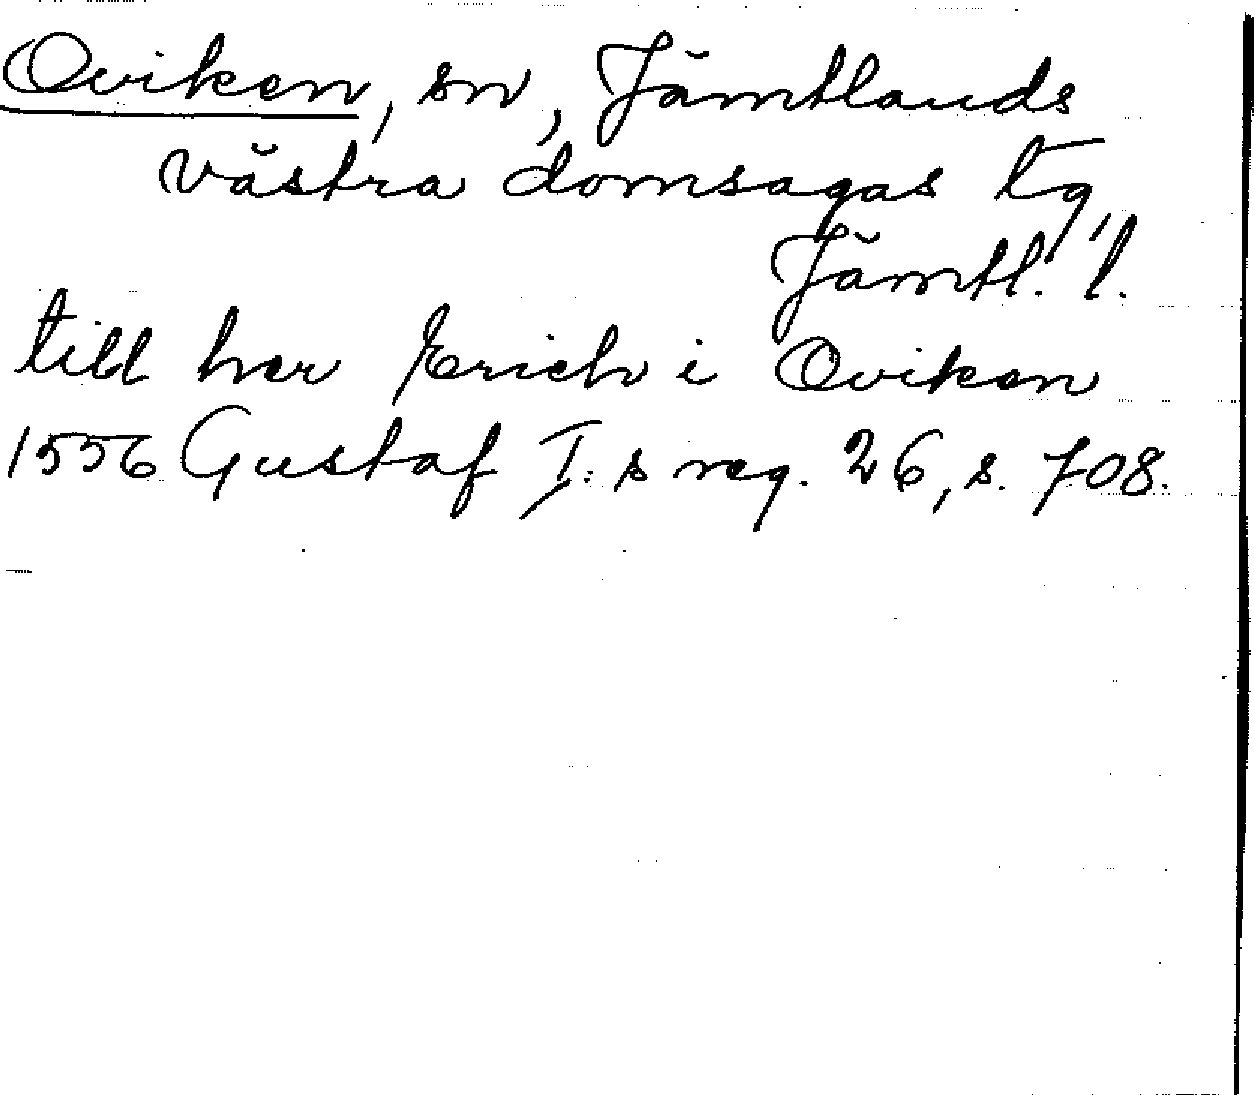 Oviken, sn, Jämtlands
västra domsagas tg,
Jämtl. l.
till her Erich i Oviken
1556 Gustaf I:s reg. 26, s. 708.